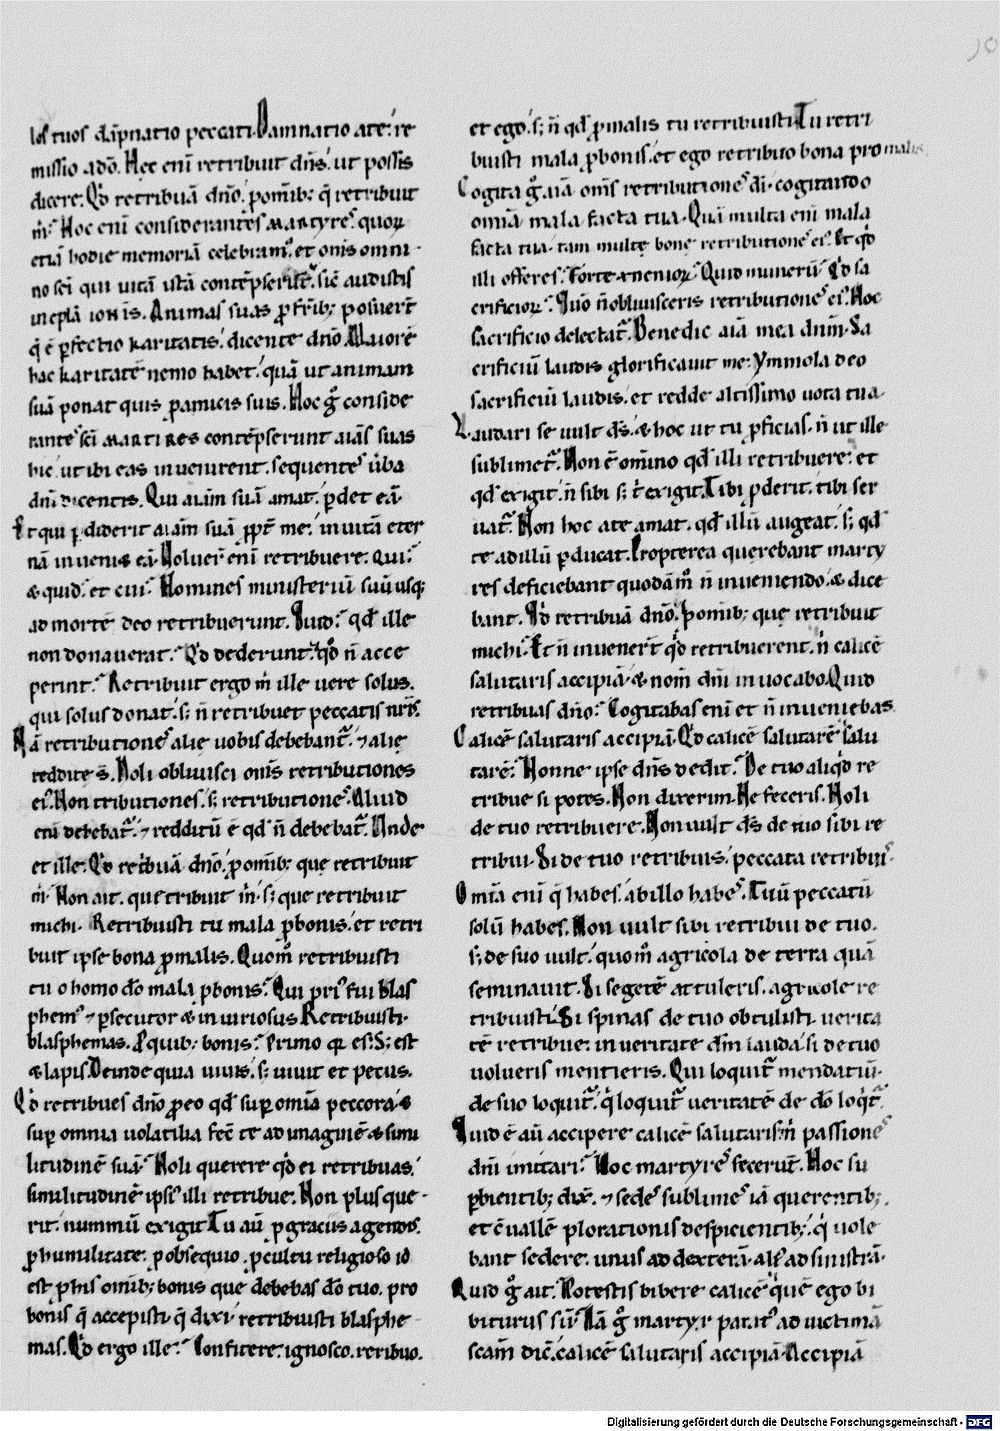 los tuos dāpnatio peccati. Damnatio a te: re
missio a dō. Hęc enī retribuit dn̄s. ut possis
dicere: Qd̄ retribuā dn̄o. p̄ om̄ib; q̄ retribuit
m̄. Hoc enī considerantes martyres quoꝝ
etiā hodie memoriā celebram᷒. et om̄s omni
no sc̄i qui uitā istā contēpserūt. sic̄ audistis
in epl̄a iohis. Animas suas p̄ frīb; posuert̄
q̄ ē p̄fectio karitatis. dicente dn̄o. Maiorē
hac karitatē nemo habet. quā ut animam
suā ponat quis p̄ amicis suis. Hoc g̊ conside
rantes sc̄i martires contēpserunt aīas suas
hic. ut ibi eas inuenirent. sequentes ūba
dn̄i dicentis. Qui aīam suā amat. p̄det eā.
Et qui p̄diderit aīam suā ppt̄ me. in uitā eter
nā inuenit eā. Noluer̄ enī retribuere. Qui.
& quid. et cui. Homines ministeriū suū usq;
ad mortē deo retribuerunt. Quid. qd̄ ille
non donauerat. Qd̄ dederunt. qd̄ n̄ acce
perint. Retribuit ergo m̄ ille uere solus.
qui solus donat. s; n̄ retribuet peccatis nr̄is.
Nā retributiones alię uobis debebant̄. ⁊ alię
reddite s̄. Noli obliuisci om̄s retributiones
ei᷒. Non tributiones. s; retributiones. Aliud
enī debebat̄. ⁊ redditū ē qd̄ n̄ debebat̄. Unde
et ille. Qd̄ retribuā dn̄o. p̄ om̄ib; que retribuit
m̄. Non ait. que tribuit m̄. s; que retribuit
michi. Retribuisti tu mala p̄ bonis. et retri
buit ipse bona p̄ malis. Quom̄ retribuisti
tu o homo dō mala p̄ bonis. Qui pri᷒ fui blas
phem᷒ ⁊ p̄secutor & iniuriosus. Retribuisti
blasphemas. P̄ quib; bonis. Primo qr̄ es. S; est
& lapis. Deinde quia uiuis. s; uiuit et pecus.
Qd̄ retribues dn̄o p̄ eo qd̄ sup̄ omīa peccora &
sup̄ omnia uolatilia fec̄ te ad imaginē & simi
litudinē suā. Noli querere qd̄ ei retribuas.
similitudinē ipsi᷒ illi retribue. Non plus que
rit. nummū exigit. Tu aū p̄ gracias agendo.
p̄ humilitate. p̄ obsequio. p̄ cultu religioso id
est p̄ his om̄ib; bonis que debebas dō tuo. pro
bonis q̄ accepisti. q̄ dixi retribuisti blasphe
mas. Qd̄ ergo ille. Confitere. ignosco. retribuo.
et ego. s; n̄ qd̄ p̄ malis tu retribuisti. Tu retri
buisti mala p̄ bonis. et ego retribuo bona pro malis.
Cogita g̊ aīā om̄s retributiones dī. cogitando
omnia mala facta tua. Quā multa enī mala
facta tua. tam multę bonę retributiones ei᷒. Et qd̄
illi offeres. Forte xenioꝝ. Quid munerū. Qd̄ sa
crificioꝝ. Quō n̄ obliuisceris retributiones ei᷒. Hoc
sacrificio delectat̄. Benedic aīa mea dnm̄. Sa
crificiū laudis glorificauit me. Ymmola deo
sacrificiū laudis. et redde altissimo uota tua.
Laudari se uult ds̄. & hoc ut tu p̄ficias. n̄ ut ille
sublimet̄. Non ē om̄ino qd̄ illi retribuere. et
qd̄ exigit. n̄ sibi s; t̄ exigit. Tibi p̄derit. tibi ser
uat̄. Non hoc a te amat. qd̄ illū augeat. s; qd̄
te ad illū p̄ducat. Propterea querebant marty
res deficiebant quodām̊ n̄ inueniendo. & dice
bant. Qd̄ retribuā dn̄o. p̄ om̄ib; que retribuit
michi. Et n̄ inuenert̄ qd̄ retribuerent. n̄ calicē
salutaris accipiā. & nom̄ dn̄i inuocabo. Quid
retribuas dn̄o. Cogitabas enī et n̄ inueniebas.
Calicē salutaris accipiā. Qd̄ calicē salutarē salu
tarē. Nonne ipse dn̄s dedit. De tuo aliqd̄ re
tribue si potes. Non dixerim. Ne feceris. Noli
de tuo retribuere. Non uult ds̄ de tuo sibi re
tribui. Si de tuo retribuis. peccata retribuis.
Omīa enī q̄ habes. ab illo habes. Tuū peccatū
solū habes. Non uult sibi retribui de tuo.
s; de suo uult. quom̄ agricola de terra quā
seminauit. Si segetē attuleris. agricole re
tribuisti. Si spinas de tuo obtulisti. Uerita
tē retribue. in ueritate dn̄m lauda. si de tuo
uolueris mentieris. Qui loquit̄ mendatiū.
de suo loquit̄. q̄ loquit̄ ueritatē de dō loqt̄.
Quid ē aū accipere calicē salutaris. n̄ passiones
dn̄i imitari. Hoc martyres fecerūt. Hoc su
p̄bientib; dix̄. ⁊ sedes sublimes iā querentib;.
et cūallē plorationis despicientib;. q̄ uole
bant sedere. unus ad dexterā. alt̄ ad sinistrā.
Quid g̊ ait. Potestis bibere calicē quē ego bi
biturus sū. Iā g̊ martyr parat᷒ ad uictimā
sc̄am dic̄. calicē salutaris accipiā. Accipiā
Digitalisierung gefördert durch die Deutsche Forschungsgemeinschaft - DFG